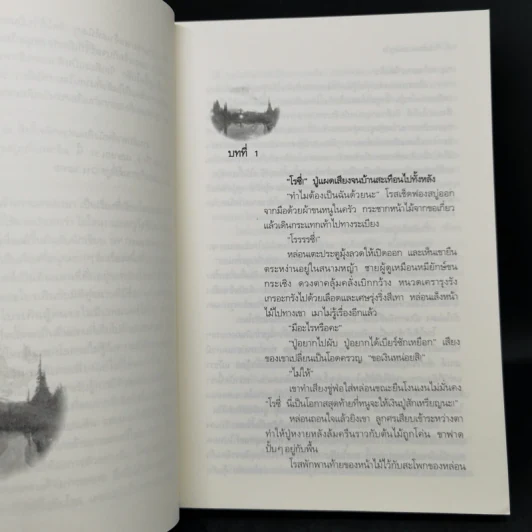 บทที่ 1
"โรซี่!" ปู่แผดเสียงจนบ้านสะเทือนไปทั้งหลัง
"ทำไมต้องเป็นฉันด้วยนะ" โรสเช็ดฟองสบู่ออก
จากมือด้วยผ้าขนหนูในครัว กระชากหน้าไม้จากขอเกี่ยว
แล้วเดินกระแทกเท้าไปทางระเบียง
"โรรรรซี่!"
หล่อนเตะประตูมุ้งลวดให้เปิดออก และเห็นเขายืน
ตระหง่านอยู่ในสนามหญ้า ชายผู้ดูเหมือนหมียักษ์ขน
กระเซิง ดวงตาคลุ้มคลั่งเบิกกว้าง หนวดเครารุงรัง
เกรอะกรังไปด้วยเลือดและเศษรุ่งริ่งสีเทา หล่อนเล็งหน้า
ไม้ไปทางเขา เมาไม่รู้เรื่องอีกแล้ว
"มีอะไรหรือคะ"
"ปู่อยากไปผับ ปู่อยากได้เบียร์ซักเหยือก" เสียง
ของเขาเปลี่ยนเป็นโอดครวญ "ขอเงินหน่อยสิ"
"ไม่ให้"
เขาทำเสียงขู่ฟ่อใส่หล่อนขณะยืนโงนเงนไม่มั่นคง
"โรซี่ นี่เป็นโอกาสสุดท้ายที่หนูจะให้เงินปู่สักเหรียญนะ!"
หล่อนถอนใจแล้วยิงเขา ลูกศรเสียบเข้าระหว่างตา
ทำให้ปู่หงายหลังล้มครืนราวกับต้นไม้ถูกโค่น ขาฟาด
ปั้นๆ อยู่กับพื้น
โรสพักพานท้ายของหน้าไม้ไว้กับสะโพกของหล่อน